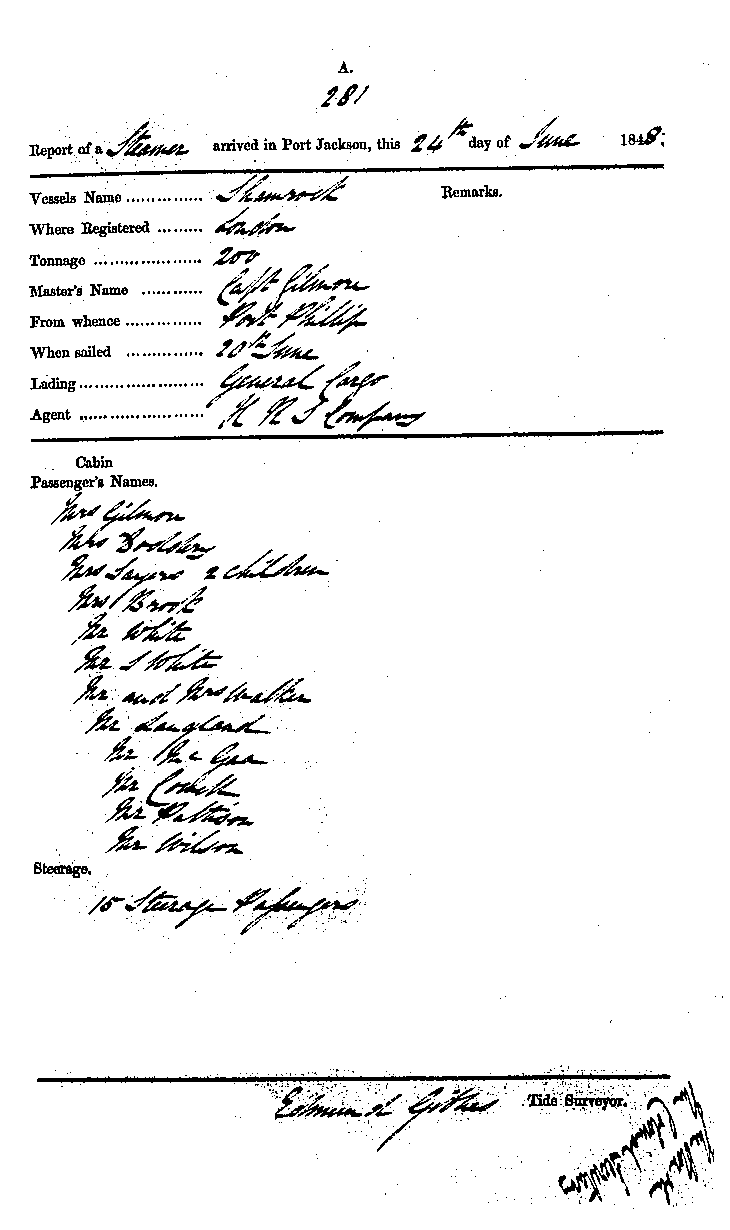 A.
281
Report of a Steamer arrived in Port Jackson, this 24th day of June 1848.
Vessels Name ............... Shamrock Remarks.
Where Registered ......... London
Tonnage ..................... 200
Master's Name ............ Capt Gilmore
From whence ............... Port Phillip
When sailed ............... 20th June
Lading ........................ General Cargo
Agent ........................ H R S Company
Cabin
Passenger's Names.
Mrs Gilmore
Mrs
Mrs Sayers 2 children
Mrs Brook
Mr White
Mr S White
Mr and Mrs Walker
Mr Langland
Mr
Mr
Mr Pattison
Mr Wilson
Steerage.
15 Steerage Passengers
Edmund Tide Surveyor.